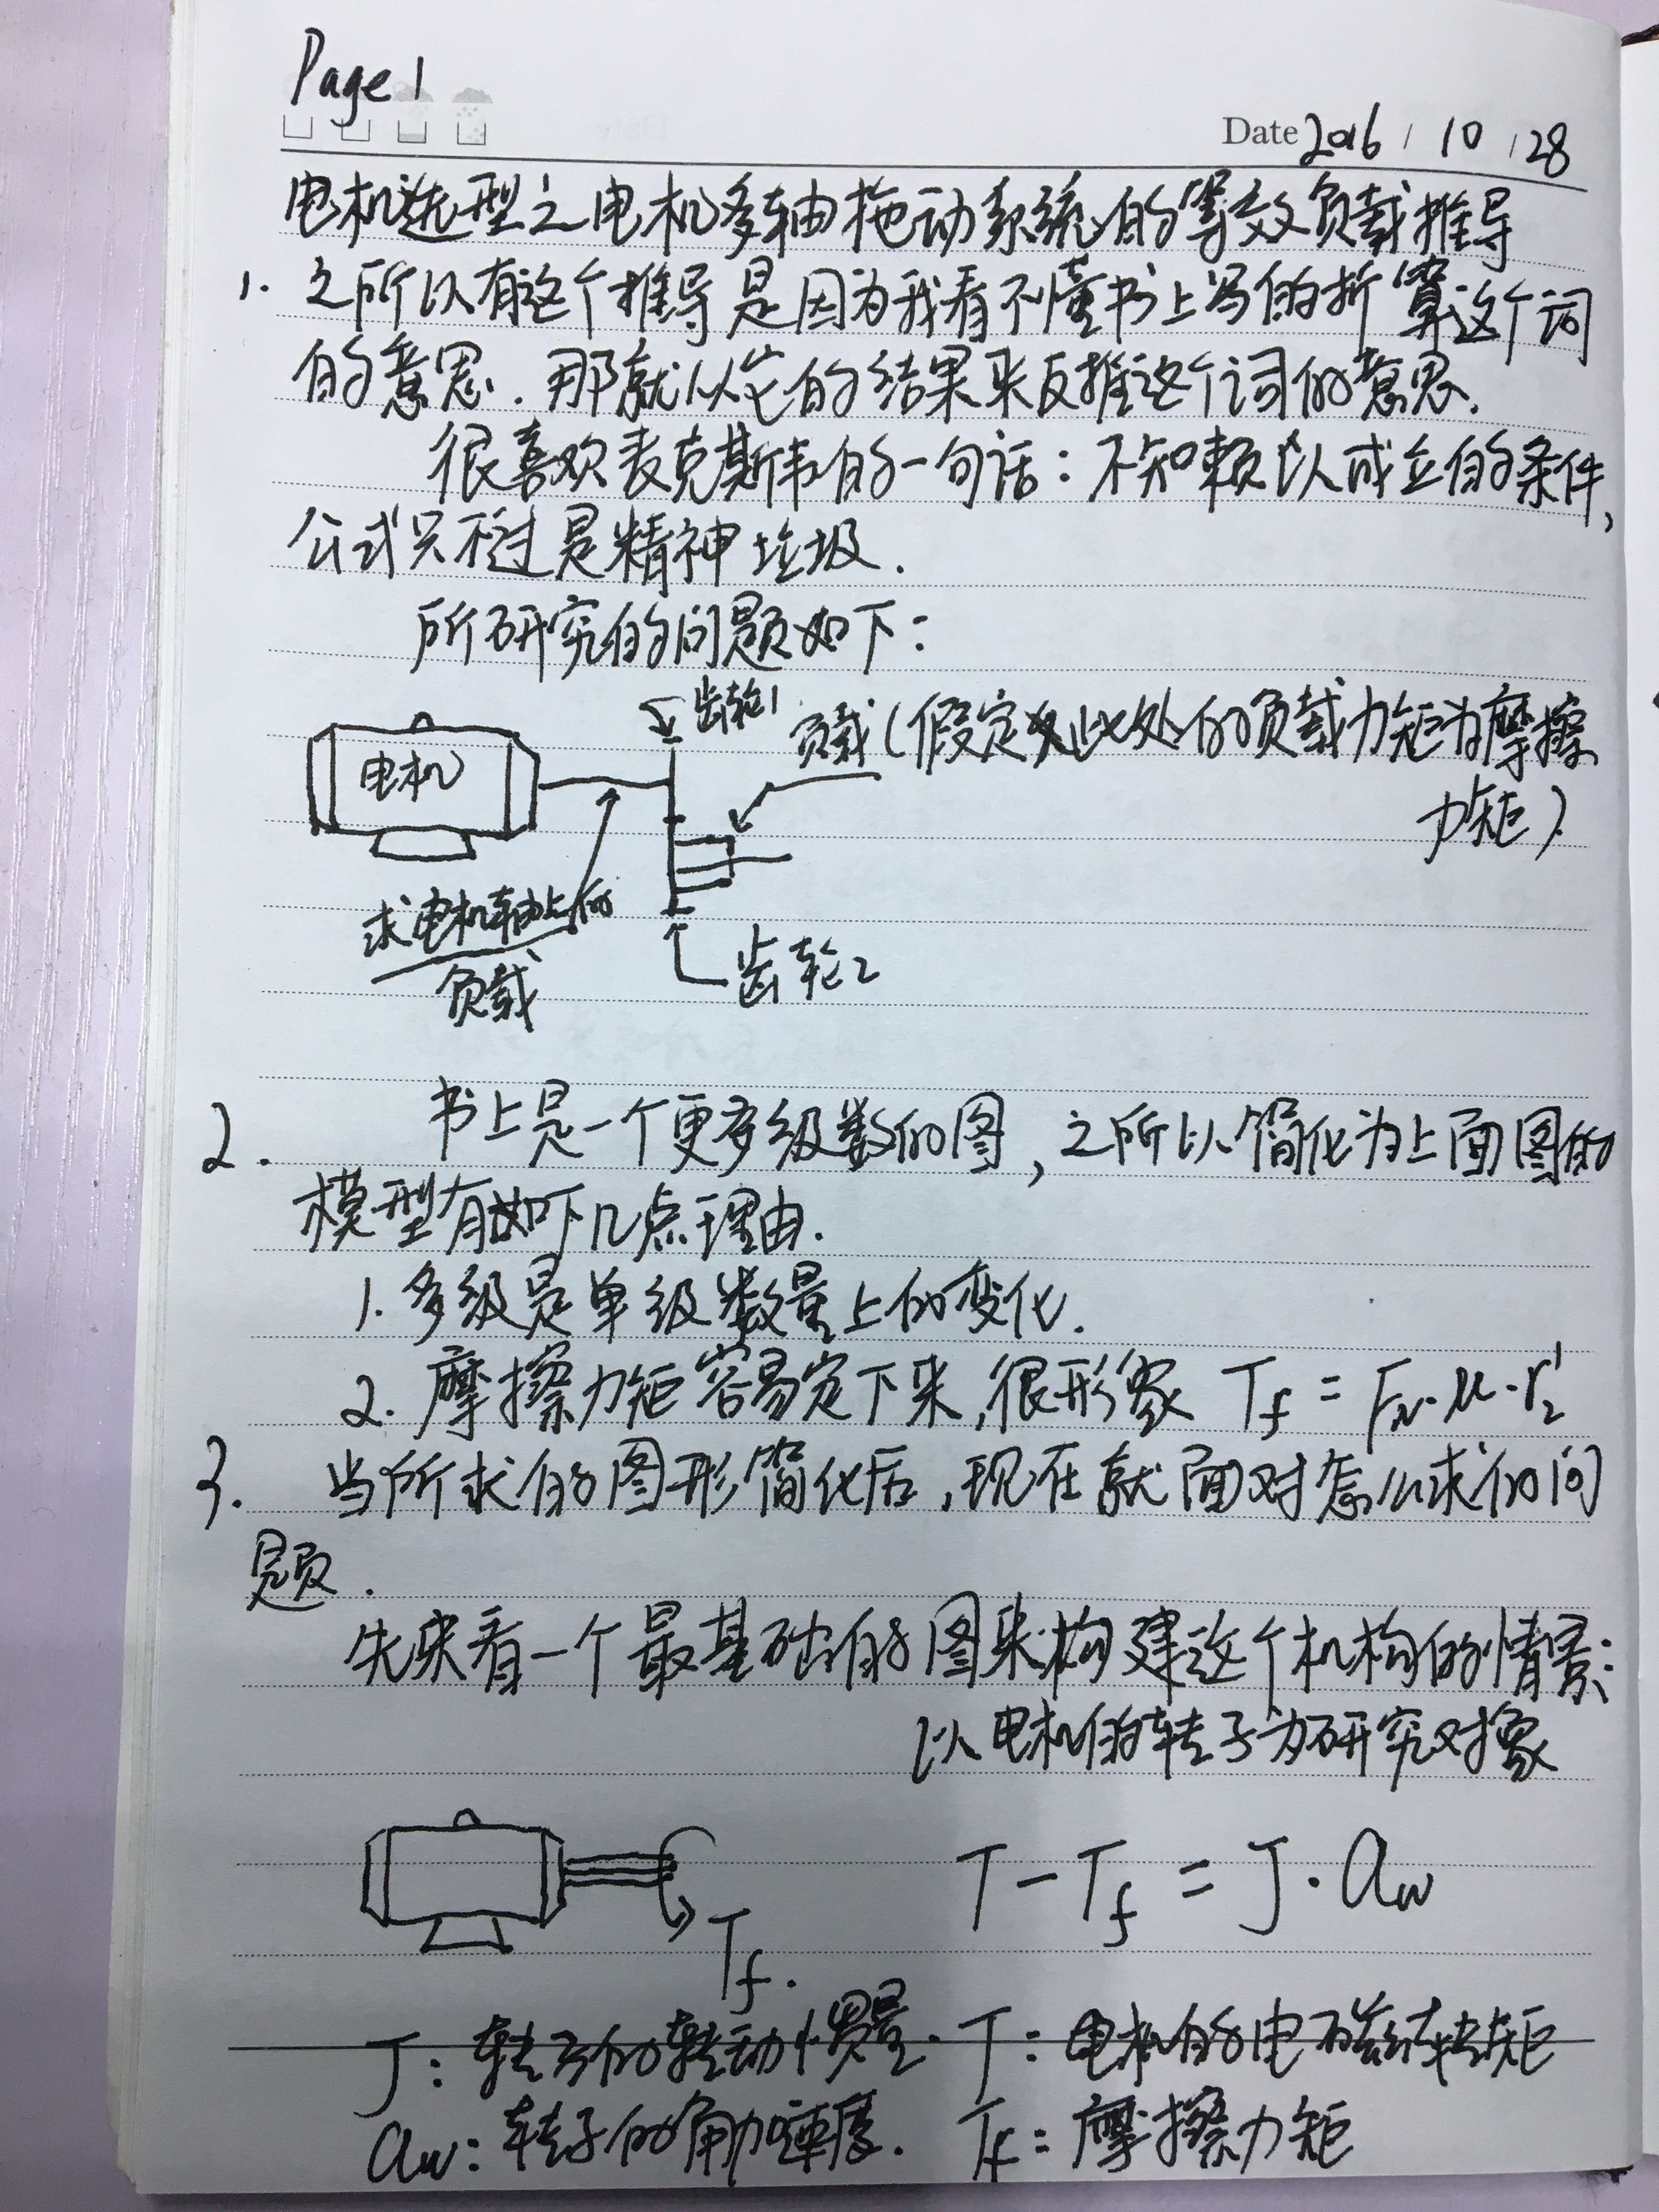 Page 1
Date 2016 / 10 / 28
电机选型之电机多轴拖动系统的等效负载推导
1. 之所以有这个推导是因为我看不懂书上写的折算这个词
的意思.那就从它的结果来反推这个词的意思.
很喜欢麦克斯韦的一句话:不知赖以成立的条件,
公式只不过是精神垃圾.
所研究的问题如下:
齿轮1
电机
负载(假定此处的负载力矩为摩擦
力矩).
求电机轴上的
负载
齿轮2
2. 书上是一个更多级数的图,之所以简化为上面图的
模型有如下几点理由.
1.多级是单级数量上的变化.
2.摩擦力矩容易定下来,很形象 Tf = FN·μ·r2'
3. 当所求的图形简化后,现在就面对怎么求的问
题.
先来看一个最基础的图来构建这个机构的情景:
以电机的转子为研究对象
T - Tf = J·aw
Tf.
J:转子的转动惯量. T:电机的电磁转矩
aw:转子的角加速度. Tf:摩擦力矩